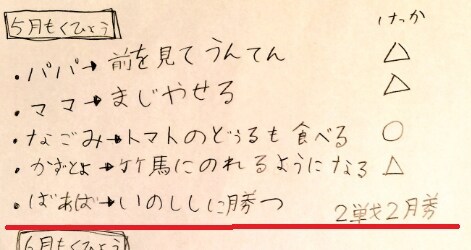 5月もくひょう
けっか
・パパ→前を見てうんてん △
・ママ→まじやせる △
・なごみ→トマトのどぅるも食べる ○
・かずとよ→竹馬にのれるようになる △
・ばあば→いのししに勝つ 2戦2勝
6月もくひょう